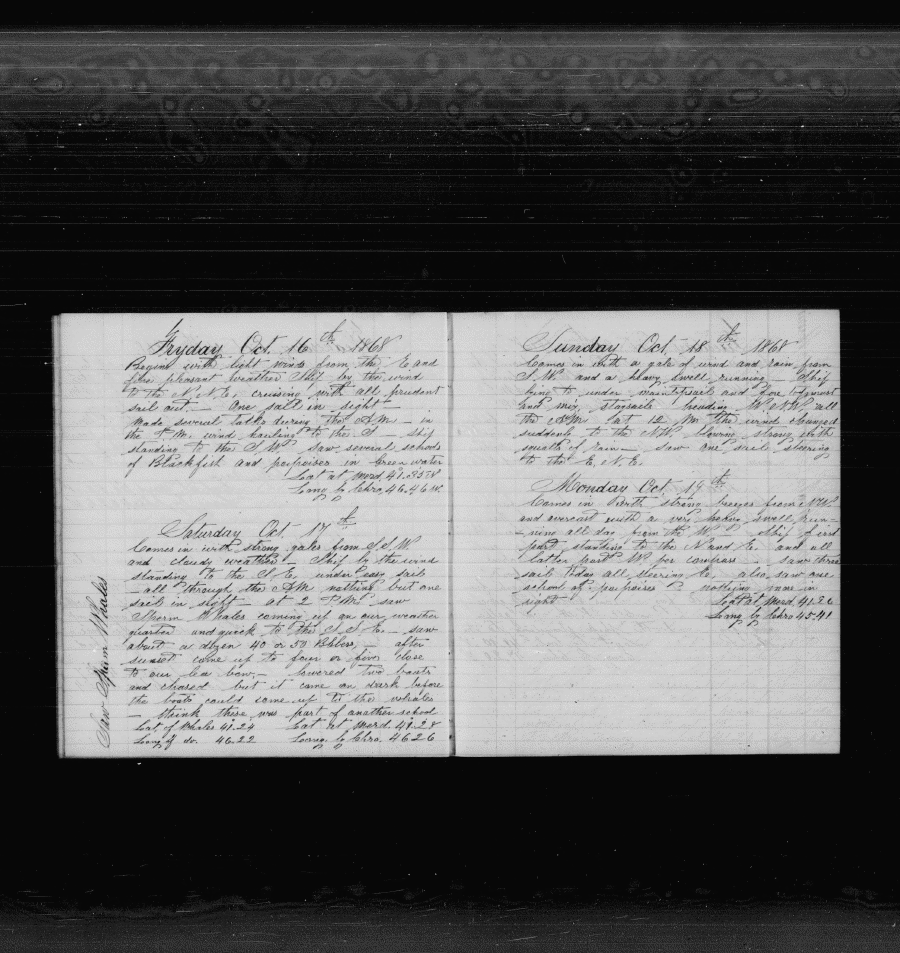 Fryday Oct. 16th 1868
Begins with light winds from the E and
fine pleasant weather Ship by the wind
to the N.N.E. cruising with all prudent
sail out. — One sail in sight —
Made several tacks during the A.M. — in
the P.M. wind hauling to the S — Ship
standing to the S.W. saw several schools
of Blackfish and porpoises in Green water
Lat at Merd. 41.35 N
Long by Chro. 46.46 W.
Saturday Oct. 17th
Comes in with strong gales from S.S.W.
and cloudy weather — Ship by the wind
standing to the S.E. under easy sail
— all through the A.M. nothing but one
sail in sight — at 2 P.M. saw
Sperm Whales coming up on our weather
quarter and quick to the S.S.E. — saw
about a dozen 40 or 50 Bblers, — after
sunset come up to four or five close
to our lea bow, — lowered two boats
and chased but it came on dark before
the boats could come up to the whales
— think these was part of another school
Lat. of Whales 41.24 Lat at Merd 41.28
Long of do. 46.22 Long by Chro. 46.26
Saw Sperm Whales
Sunday Oct 18th 1868
Comes in with a gale of wind and rain from
S.W. and a heavy swell running — Ship
lying to under mainspail and fore topmast
and miz. staysails heading W.N.W. all
the A.M. at 12 M the wind changed
suddenly to the N.W. blowing strong with
squalls of rain — saw one sail steering
to the E.N.E.
Monday Oct 19th
Comes in with strong breezes from N.W.
and overcast with a very heavy swell run-
-ning all day from the W. Ship first
part standing to the N and E. and all
latter part W per compass — saw three
sail today all steering E, also saw one
school of porpoises nothing more in
sight Lat at Merd. 41.26
Long by Chro 45.41